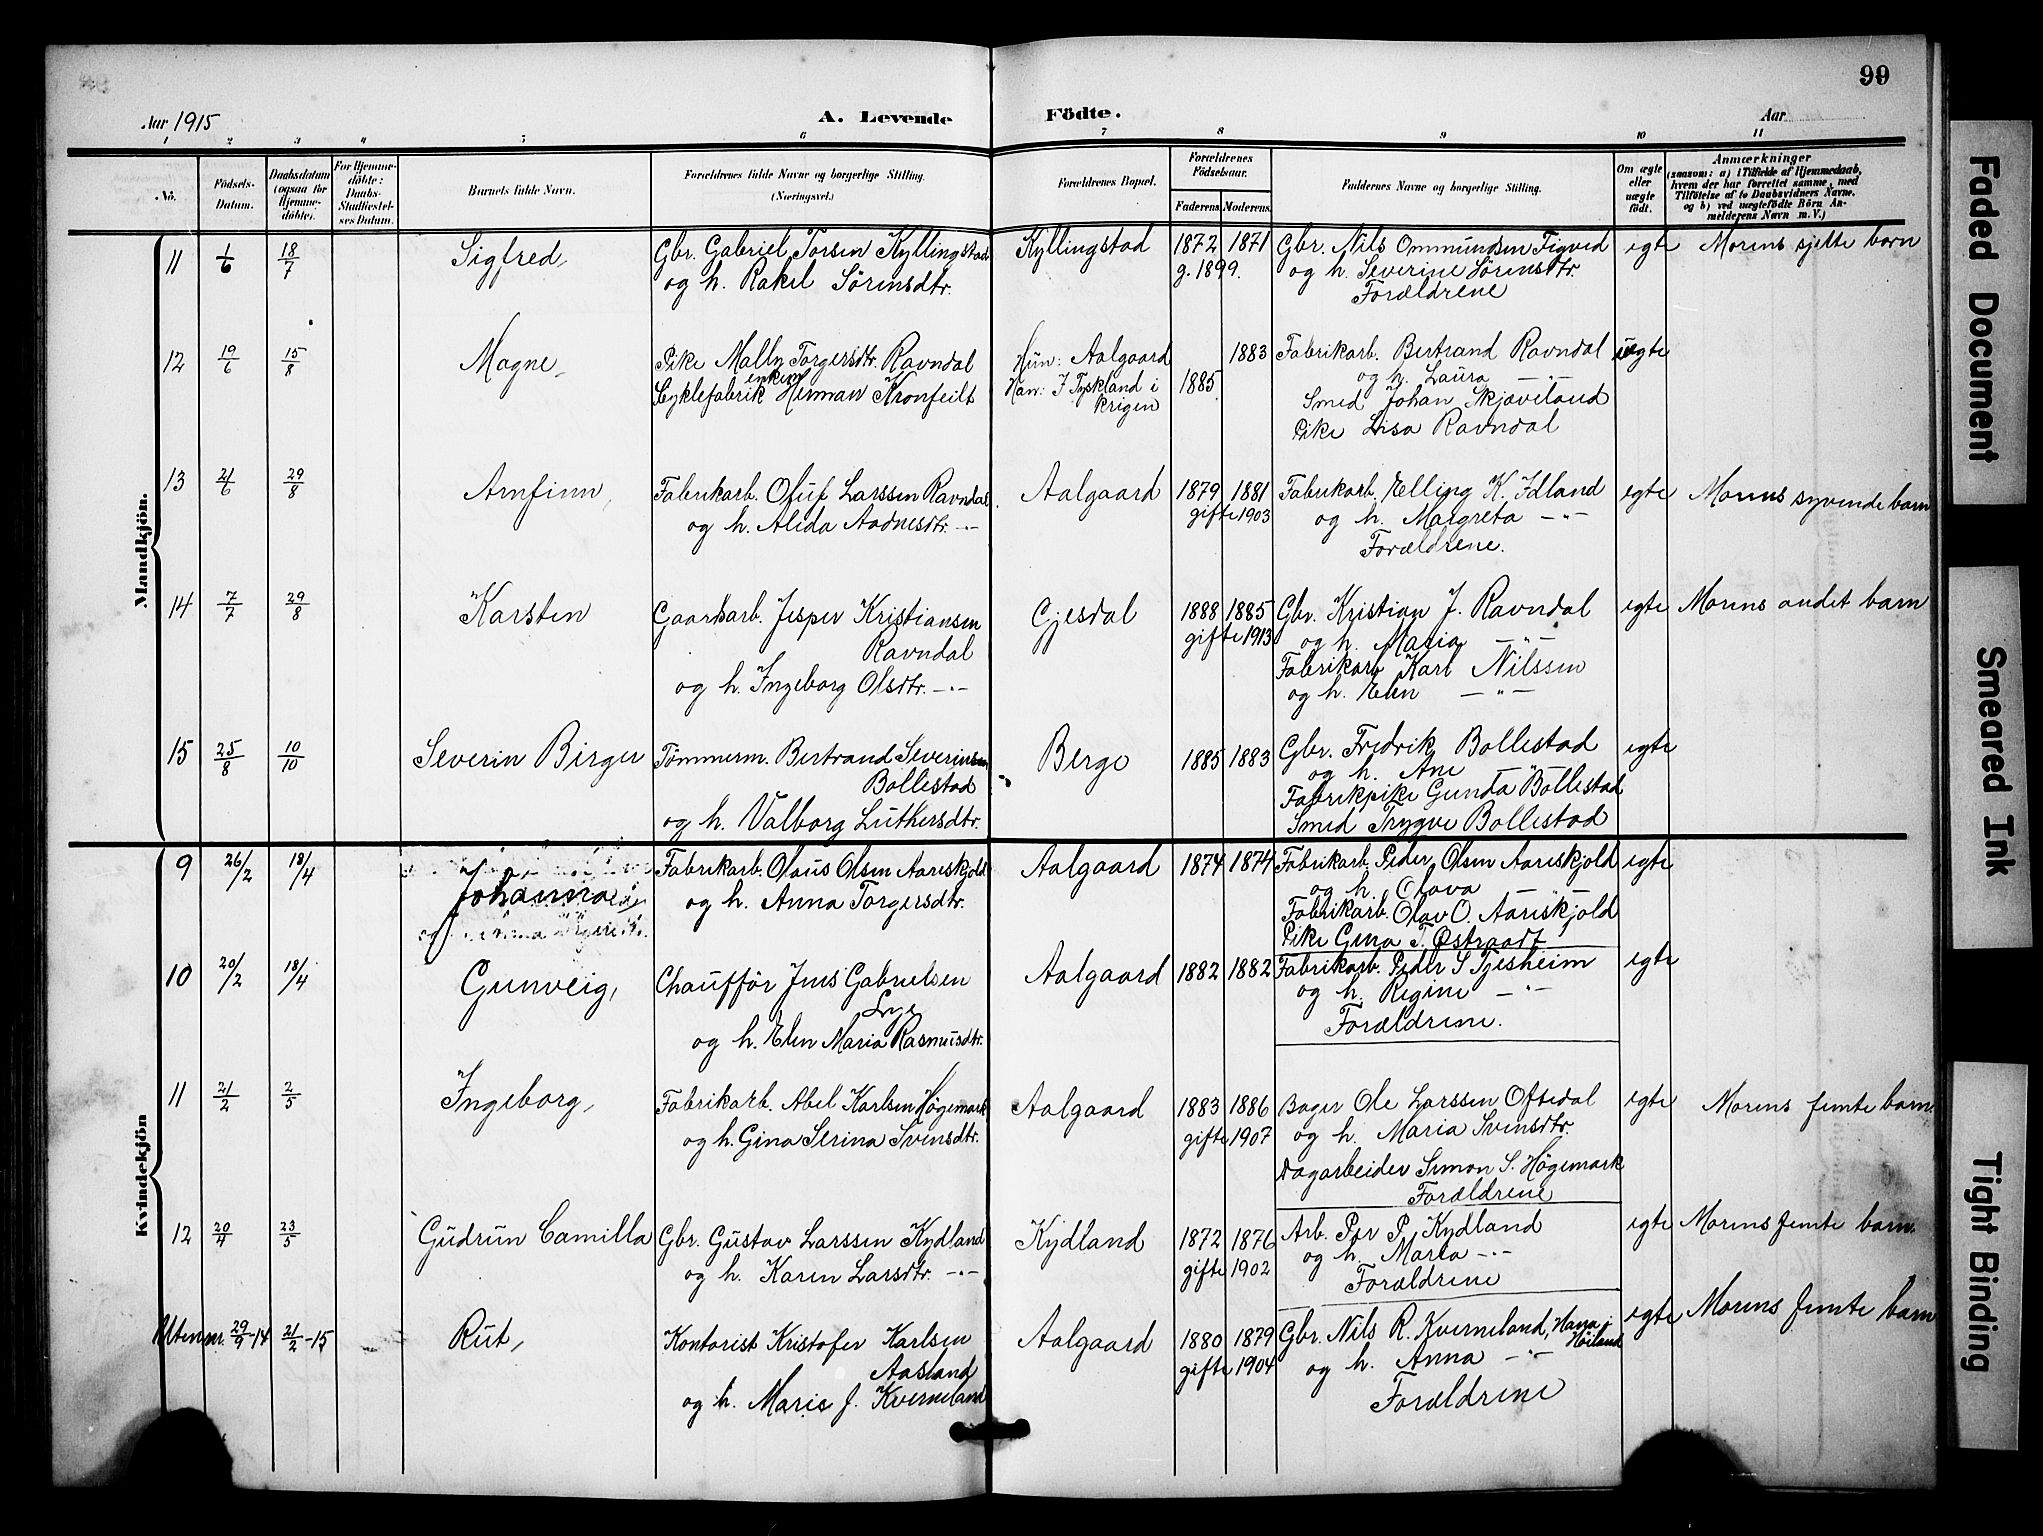 99
Aar 1915
A. Levende Födte.
Aar
1 2 3 4 5 6 7 8 9 10 11
No.
Födsels-Datum.
Daabsdatum (ogsaa for Hjemmedöbte).
For Hjemmedöbte: Daabs-Stadfæstelses Datum.
Barnets fulde Navn.
Forældrenes fulde Navne og borgerlige Stilling. (Næringsvei.)
Forældrenes Bopæl.
Forældrenes Födselsaar.
Faderens. Moderens.
Faddernes Navne og borgerlig Stilling.
Om ægte eller uægte födt.
Anmærkninger
(saasom: a) i Tilfælde af Hjemmedaab, hvem der har forrettet samme, med Tilföielse af to Daabsvidners Navne. og b) ved uægtefödte Börn Anmelderens Navn m. V.)
Mandkjön.
11 1/6 18/7 Sigfred, Gbr. Gabriel Torsen Kyllingstad Kyllingstad 1872 1871 Gbr. Nils Ommundsen Figved egte Morens sjette barn
og h. Rakel Sörensdtr. g. 1899. og h. Severine Sörensdtr.
Forældrene
12 19/6 15/8 Magne, Pike Mally Torgersdtr. Ravndal Hun: Aalgaard 1883 Fabrikarb. Bertrand Ravndal uegte
Cyklefabrikenken Herman Kronfeilt Han: I Tyskland i krigen 1885 og h. Laura —"—
Smed Johan Skjæveland
Pike Lisa Ravndal
13 21/6 29/8 Arnfinn, Fabrikarb. Oluf Larssen Ravndal Aalgaard 1879 1881 Fabrikarb. Elling K. Idland egte Morens syvende barn
og h. Alida Aadnesdtr. —"— gifte 1903 og h. Margreta —"—
Forældrene.
14 7/7 29/8 Karsten Gaardarb. Jesper Kristiansen Gjesdal 1888 1885 Gbr. Kristian J. Ravndal egte Morens andet barn
Ravndal gifte 1913 og h. Maria —"—
og h. Ingeborg Olsdtr. —"— Fabrikarb. Karl Nilssen
og h. Elen —"—
15 25/8 10/10 Severin Birger Tömmerm. Bertrand Severinsen Berge 1885 1883 Gbr. Fredrik Bollestad egte
Bollestad og h. Ane —"—
og h. Valborg Luthersdtr. Fabrikpike Gunda Bollestad
Smed Trygve Bollestad
Kvindekjön
9 26/2 18/4 Johanna Fabrikarb. Olaus Olsen Aareskjold Aalgaard 1874 1874 Fabrikarb. Peder Olsen Aareskjold egte
og h. Anna Torgersdtr. og h. Olava —"—
Fabrikarb. Olav O. Aareskjold
Pike Gina T. Østraadt
10 20/2 18/4 Gunveig, Chaufför Jens Gabrielsen Aalgaard 1882 1882 Fabrikarb. Peder S Tjesheim egte
Lye og h. Regine —"—
og h. Elen Maria Rasmusdtr. Forældrene.
11 21/2 2/5 Ingeborg, Fabrikarb. Abel Karlsen Högemark Aalgaard 1883 1886 Bager Ole Larssen Oftedal egte Morens femte barn
og h. Gina Serina Svensdtr. gifte 1907 og h. Maria Svensdtr.
Dagarbeider Simon S. Högemark
Forældrene
12 20/4 23/5 Gudrun Camilla Gbr. Gustav Larssen Kydland Kydland 1872 1876 Arb. Per P. Kydland egte Morens femte barn.
og h. Karen Larsdtr. —"— gifte 1902 og h. Marta —"—
Forældrene
Uten nr. 29/9-14 21/2-15 Rut, Kontorist Kristofer Karlsen Aalgaard 1880 1879 Gbr. Nils R. Kverneland, Hana i Höiland egte Morens femte barn
Aasland gifte 1904 og h. Anna —"—
og h. Marie J. Kverneland Forældrene
Faded Document
Smeared Ink
Tight Binding